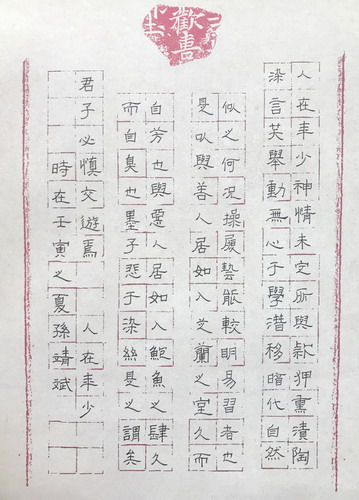 歡喜
人在年少神情未定所與款狎熏漬陶
染言笑舉動無心于學潛移暗化自然
似之何況操履藝能較明易習者也
是以與善人居如入芝蘭之室久而
自芳也與惡人居如入鮑魚之肆久
而自臭也墨子悲于染絲是之謂矣
君子必慎交遊焉 人在年少
時在壬寅之夏孫靖斌